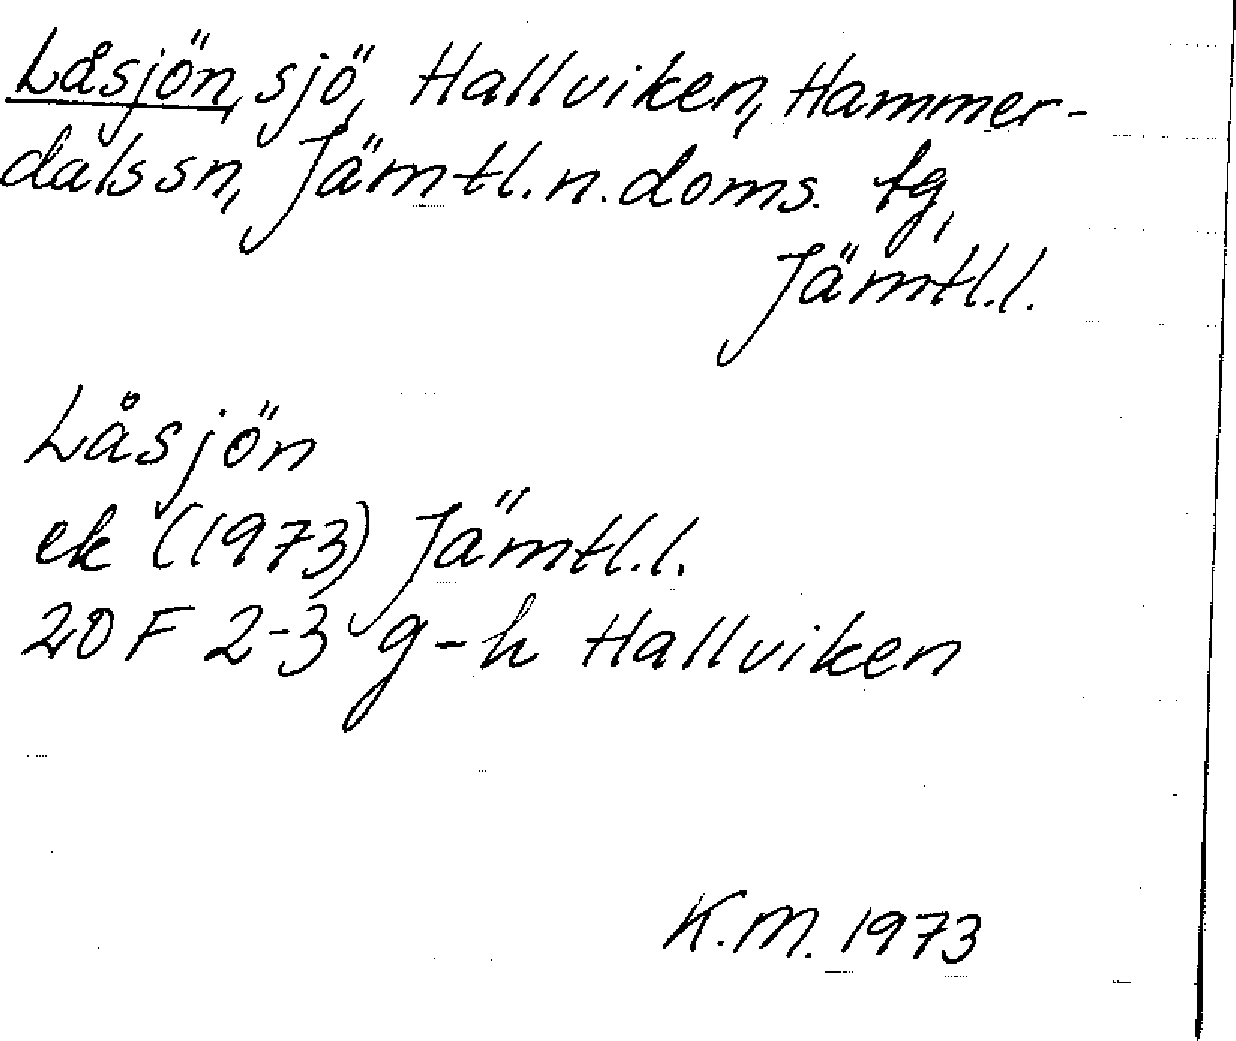 Låsjön, sjö, Hallviken, Hammer-
dals sn, Jämtl. n. doms. tg,
Jämtl. l.
Låsjön
ek (1973) Jämtl. l.
20 F 2-3 g-h Hallviken
K. M. 1973